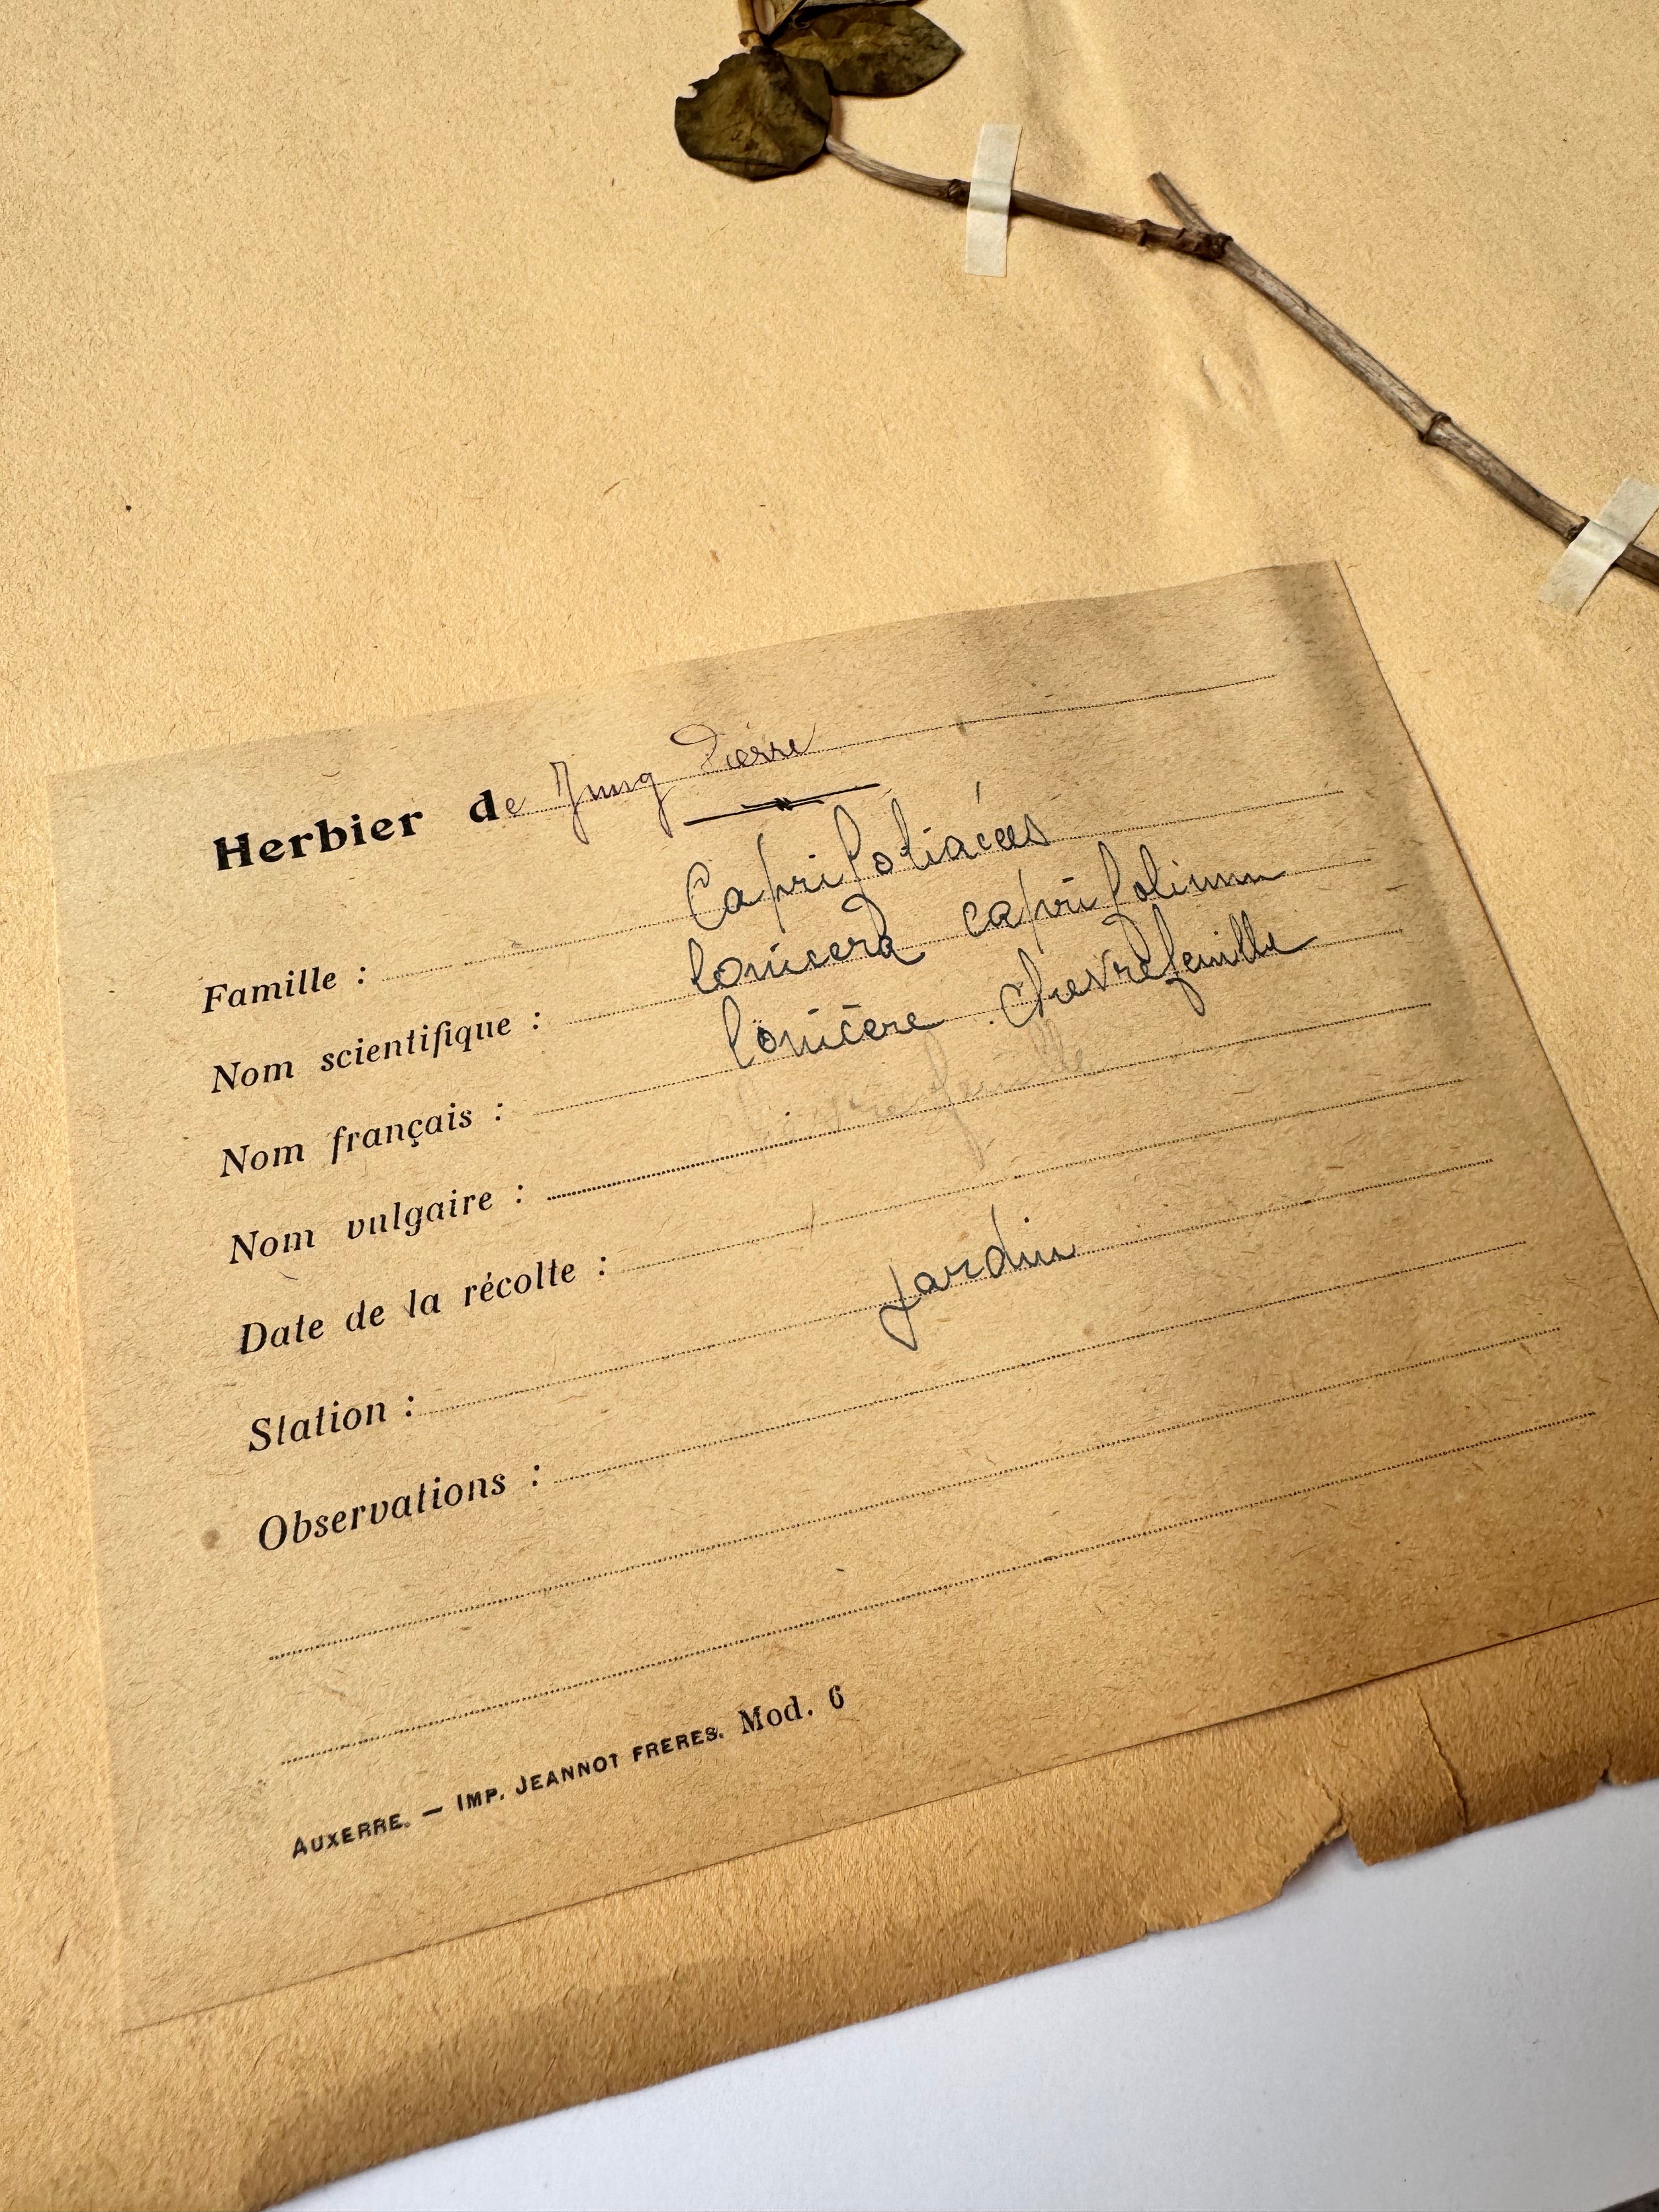 Herbier de Jung Pierre
Famille : Caprifoliacées
Nom scientifique : lonicera caprifolium
Nom français : lonicère chevrefeuille
Nom vulgaire :
Date de la récolte :
Station : jardin
Observations :
AUXERRE. — IMP. JEANNOT FRERES. Mod. 6